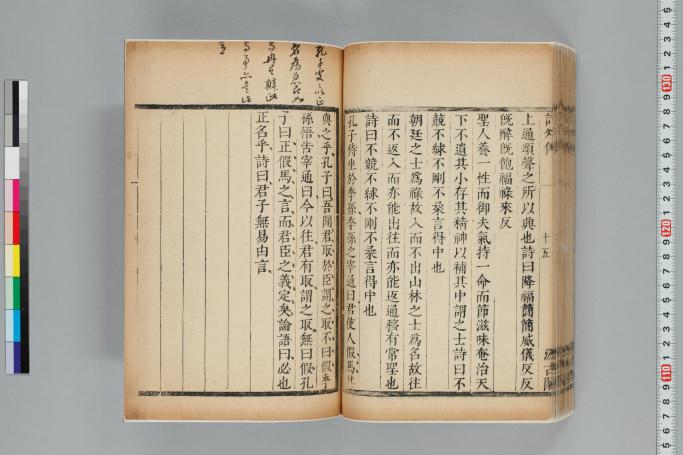 上通頌聲之所以興也詩曰降福簡簡威儀反反
既醉既飽福祿來反
聖人養一性而御夫氣持一命而節滋味奄治天
下不遺其小存其精神以補其中謂之士詩曰不
競不絿不剛不柔言得中也
朝廷之士爲祿故入而不出山林之士爲名故往
而不返入而亦能出往而亦能返通移有常聖也
詩曰不競不絿不剛不柔言得中也
孔子侍坐於季孫季孫之宰通曰君使人假馬其
與之乎孔子曰吾聞君取於臣謂之取不曰假季
孫悟告宰通曰今以往君有取謂之取無曰假孔
子曰正假馬之言而君臣之義定矣論語曰必也
正名乎詩曰君子無易由言
十五